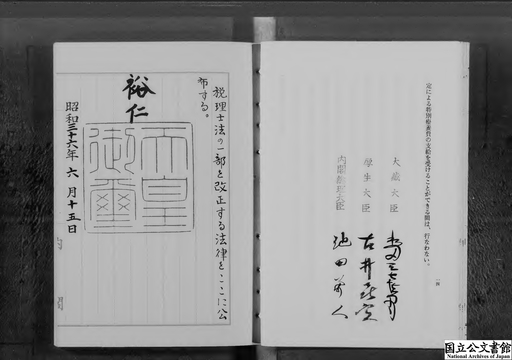 定による特別療養費の支給を受けることができる間は、行なわない。
大蔵大臣
厚生大臣 古井喜実
内閣総理大臣 池田勇人
税理士法の一部を改正する法律をここに公
布する。
裕仁
天皇
御璽
昭和三十六年六月十五日
国立公文書館
National Archives of Japan